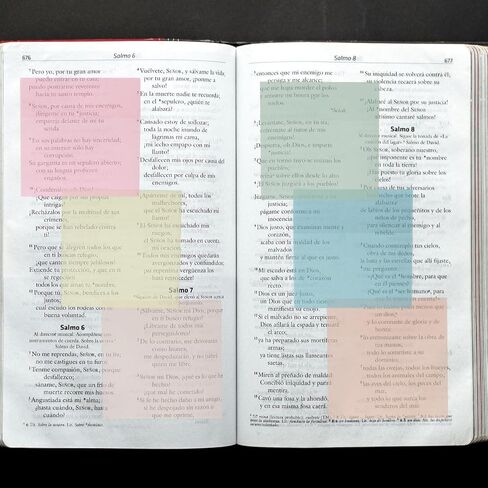 676
Salmo 6
7 Pero yo, por tu gran amor
puedo entrar en tu casa;
puedo postrarme reverente
hacia tu santo templo.
8 Señor, por causa de mis enemigos,
dirígeme en tu *justicia;
empareja delante de mí tu
senda.
9 En sus palabras no hay sinceridad;
en su interior sólo hay
corrupción.
Su garganta es un sepulcro abierto;
con su lengua profieren
engaños.
10 ¡Condénalos, oh Dios!
¡Que caigan por sus propias
intrigas!
¡Recházalos por la multitud de sus
crímenes,
porque se han rebelado contra
ti!
11 Pero que se alegren todos los que
en ti buscan refugio;
¡que canten siempre jubilosos!
Extiende tu protección, y que en ti
se regocijen
todos los que aman tu *nombre.
12 Porque tú, Señor, bendices a los
justos;
cual escudo los rodeas con tu
buena voluntad.
Salmo 6
Al director musical. Acompáñese con
instrumentos de cuerda. Sobre la octava.
Salmo de David.
1 No me reprendas, Señor, en tu ira;
no me castigues en tu furor.
2 Tenme compasión, Señor, porque
desfallezco;
sáname, Señor, que un frío de
muerte recorre mis huesos.
3 Angustiada está mi *alma;
¿hasta cuándo, Señor, hasta
cuándo?
4 Vuélvete, Señor, y sálvame la vida;
por tu gran amor, ¡ponme a
salvo!
5 En la muerte nadie te recuerda;
en el *sepulcro, ¿quién te
alabará?
6 Cansado estoy de sollozar;
toda la noche inundo de
lágrimas mi cama,
¡mi lecho empapo con mi
llanto!
7 Desfallecen mis ojos por causa del
dolor;
desfallecen por culpa de mis
enemigos.
8 ¡Apártense de mí, todos los
malhechores,
que el Señor ha escuchado mi
llanto!
9 El Señor ha escuchado mis
ruegos;
el Señor ha tomado en cuenta
mi oración.
10 Todos mis enemigos quedarán
avergonzados y confundidos;
¡su repentina vergüenza los
hará retroceder!
Salmo 7
1 ¡Sálvame, Señor mi Dios, porque
en ti busco refugio!
¡Líbrame de todos mis
perseguidores!
2 De lo contrario, me devorarán
como leones;
me despedazarán, y no habrá
quien me libre.
3 Señor mi Dios, ¿qué es lo que he
hecho?
¿qué mal he cometido?
4 Si le he hecho daño a mi amigo,
si he despojado sin razón al
que me oprime,
Salmo 8
677
5 entonces que mi enemigo me
persiga y me alcance;
que me haga morder el polvo
6 ¡Levántate, Señor, en tu ira;
enfréntate al furor de mis
enemigos!
¡Despierta, oh Dios, e imparte
justicia!
7 Que en torno tuyo se reúnan los
pueblos;
reina sobre ellos desde lo alto
8 ¡El Señor juzgará a los pueblos!
Júzgame, Señor,
justicia;
págame conforme a mi
inocencia.
9 Dios justo, que examinas mente y
corazón,
acaba con la maldad de los
malvados
y mantén firme al que es justo.
10 Mi escudo está en Dios,
que salva a los de corazón
recto.
11 Dios es un juez justo,
un Dios que en todo tiempo
manifiesta su enojo.
12 Si el malvado no se arrepiente,
Dios afilará la espada y tensará
el arco;
13 ya ha preparado sus mortíferas
armas;
ya tiene listas sus llameantes
saetas.
14 Miren al preñado de maldad:
Concibió iniquidad y parirá
mentira.
15 Cavó una fosa y la ahondó,
y en esa misma fosa caerá.
16 Su iniquidad se volverá contra él;
su violencia recaerá sobre su
cabeza.
17 ¡Alabaré al Señor por su justicia!
¡Al *nombre del Señor
altísimo cantaré salmos!
Salmo 8
Al director musical. Sígase la tonada de «La
canción del lagar». Salmo de David.
1 Oh Señor, soberano nuestro,
¡qué imponente es tu *nombre
en toda la tierra!
¡Has puesto tu gloria sobre los
cielos!
2 Por causa de tus adversarios
has hecho que brote la
alabanza
de labios de los pequeñitos y de los
niños de pecho,
para silenciar al enemigo y al
rebelde.
3 Cuando contemplo tus cielos,
obra de tus dedos,
la luna y las estrellas que allí fijaste,
me pregunto:
4 «¿Qué es el *hombre, para que en
él pienses?
¿Qué es el *ser humano, para
que lo tomes en cuenta?»
y lo coronaste de gloria y de
honra;
6 lo entronizaste sobre la obra de
tus manos,
todo lo sometiste a su
dominio;
7 todas las ovejas, todos los bueyes,
todos los animales del campo,
8 las aves del cielo, los peces del
mar,
y todo lo que surca los
senderos del mar.